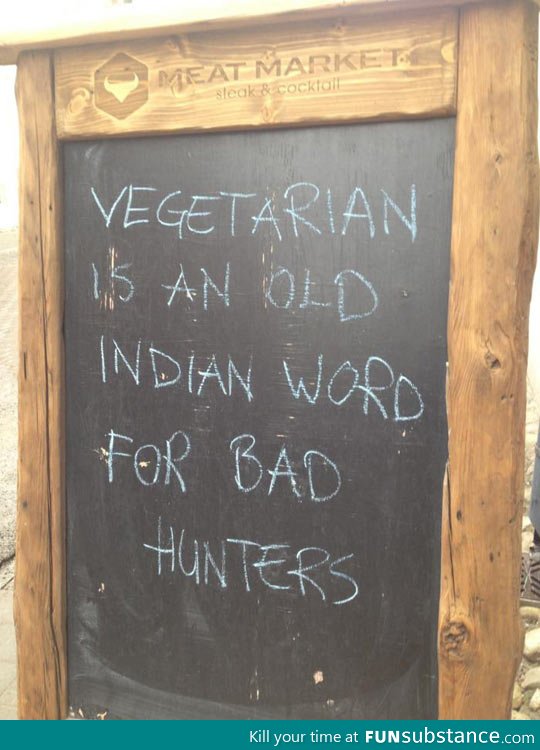 MEAT MARKET
steak & cocktail
VEGETARIAN
IS AN OLD
INDIAN WORD
FOR BAD
HUNTERS
Kill your time at FUNsubstance.com